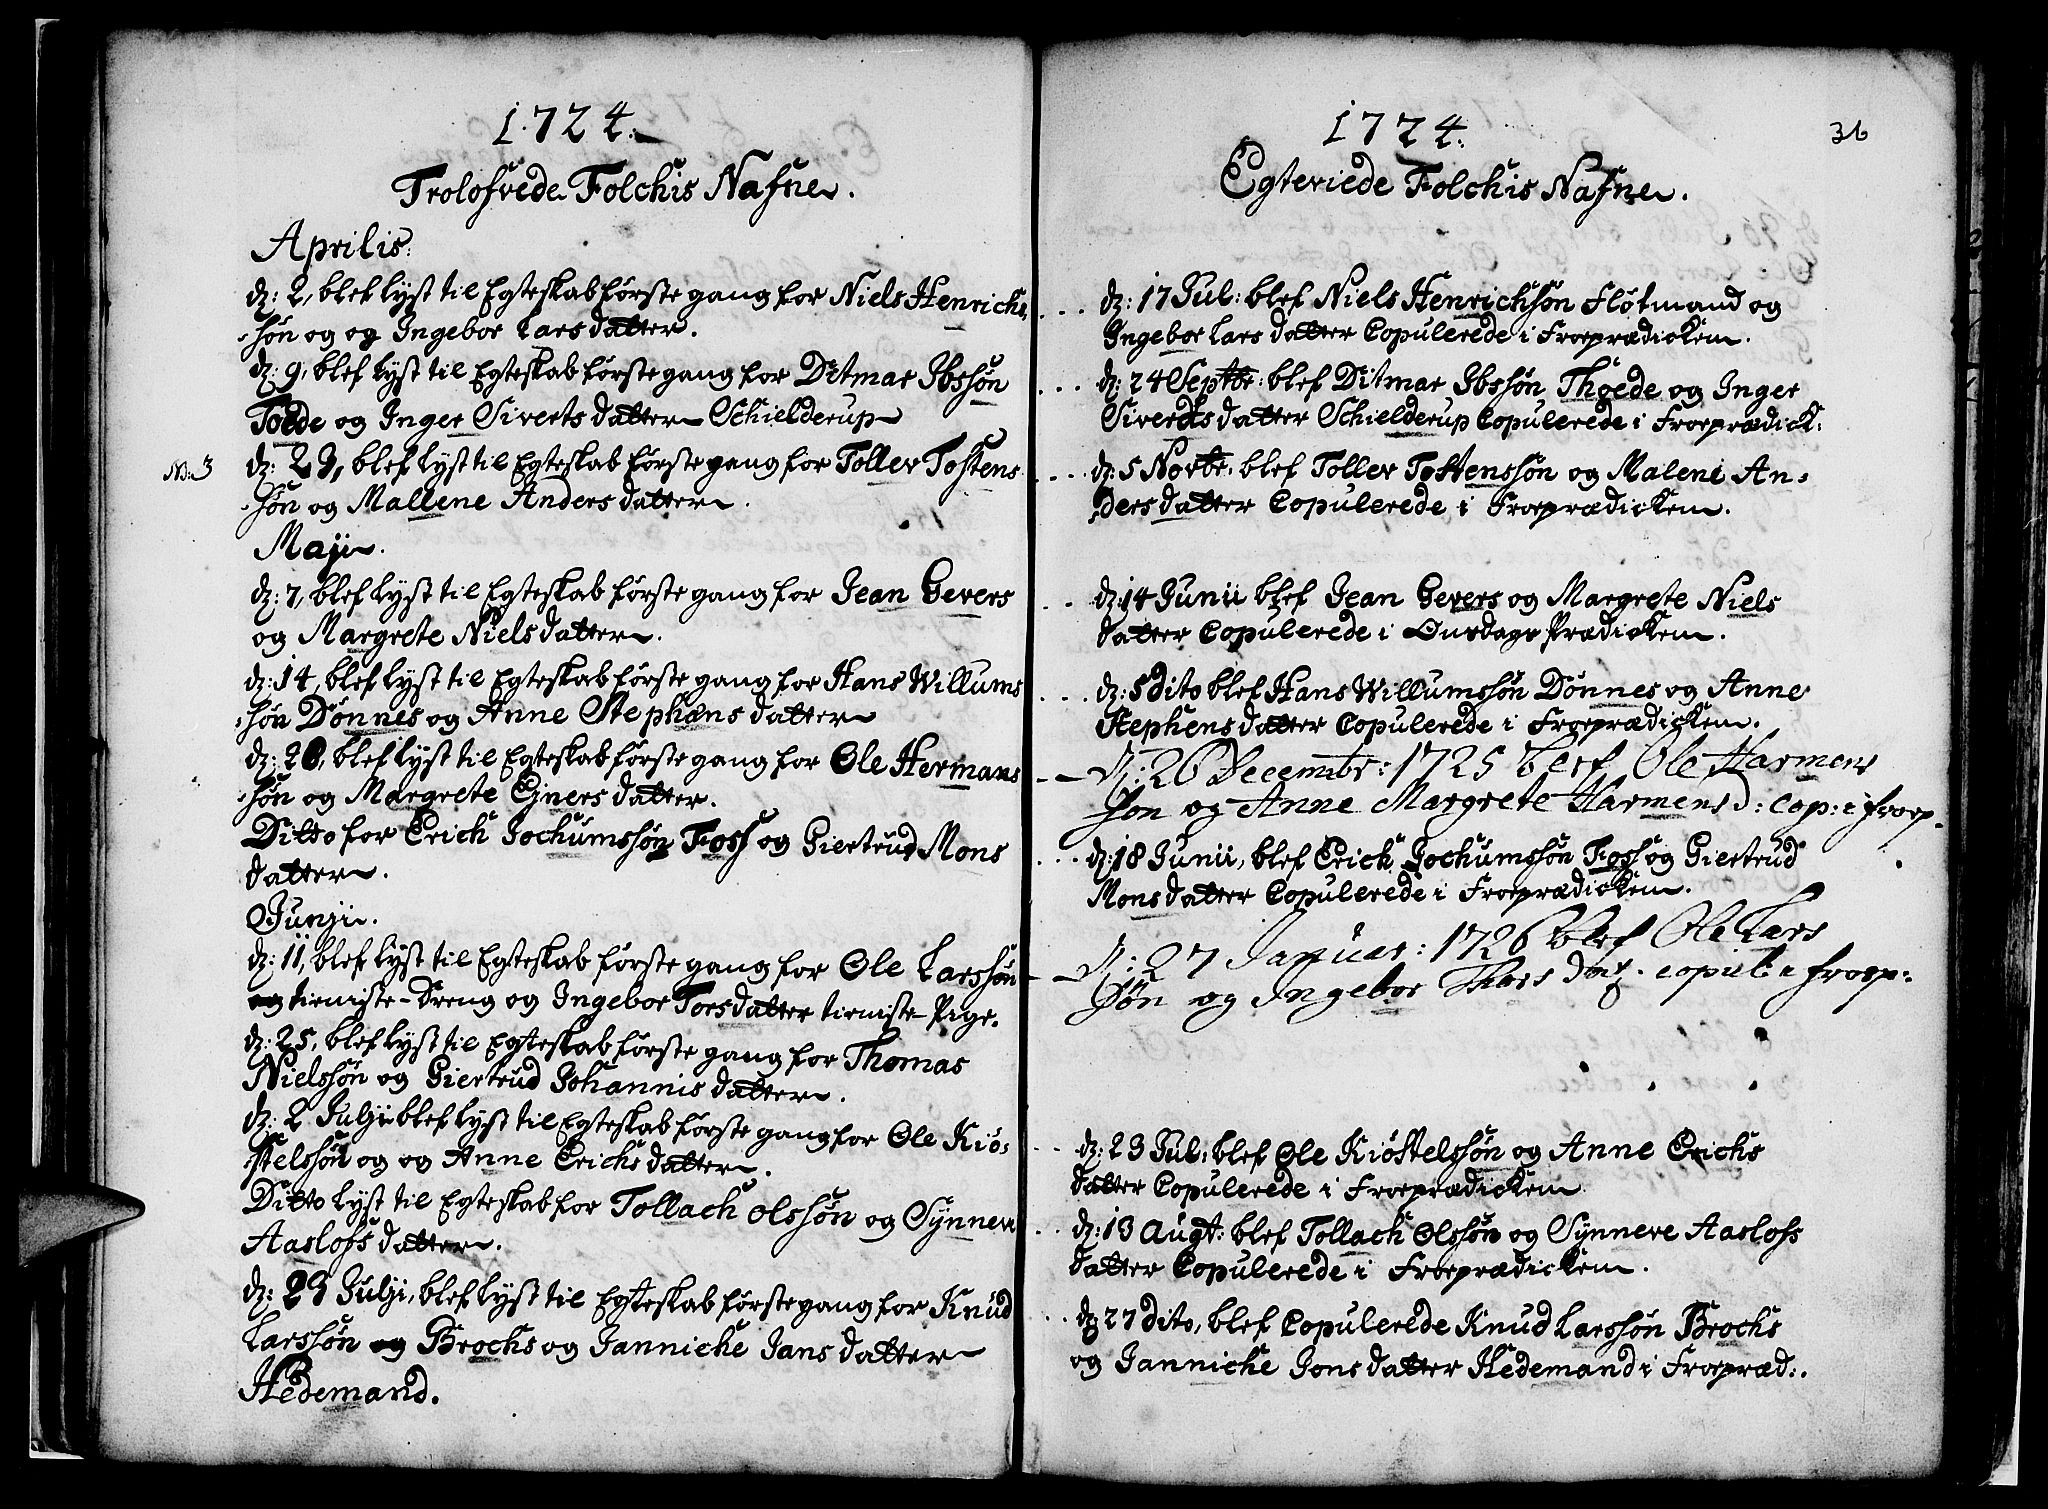 1.724.
Trolofvede Folchis Nafne.
Aprilis:
dz: 2, blef lyst til Egteskab første gang for Niels Henrichs,
søn og og Ingebor Lars datter.
dz. 9, blef lyst til Egteskab første gang for Ditmar Ibssøn
Toede og Inger Siverts datter Schielderup
No. 3 dz: 23, blef lyst til Egteskab første gang for Toller Tostens
søn og Mallene Anders datter.
Maji.
dz: 7, blef lyst til Egteskab første gang for Jean Gevers
og Margrete Niels datter.
dz: 14, blef lyst til Egteskab første gang for Hans Willums
søn Dønnes og Anne Stephens datter
dz: 20, blef lyst til Egteskab første gang for Ole Hermans
søn og Margrete Ejners datter.
Ditto for Erich Jochumssøn Foss og Giertrud Mons
datter.
Junji.
dz: 11, blef lyst til Egteskab første gang for Ole Larssøn
og tieniste-Dreng og Ingebor Torsdatter tieniste Pige.
dz: 25, blef lyst til Egteskab første gang for Thomas
Nielssøn og Giertrud Johannis datter.
dz: 2 Julji blef lyst til Egteskab første gang for Ole Kiø-
stelssøn og og Anne Erichs datter.
Ditto lyst til Egteskab for Tollach Olssøn og Synneve
Aaslofs datter.
dz: 23 Julji, blef lyst til Egteskab første gang for Knud
Larssøn og Brochs og Jannicke Jans datter
Hedemand.
1724.
36
Egteviede Folchis Nafne.
dz: 17 Jul: blef Niels Henrichsøn Fløtmand og
Ingebor Lars datter Copulerede i Froeprædicken.
dz: 24 Septbr: blef Ditmar Ibssøn Thøede og Inger
Siverdts datter Schielderup Copulerede i Froeprædick:
dz: 5 Novbr: blef Toller Tostenssøn og Maleni An-
dersdatter Copulerede i Froeprædicken.
dz: 14 Junii blef Jean Gevers og Margrete Niels
datter Copulerede i Onsdags Prædicken.
dz: 5 dito blef Hans Willumssøn Dønnes og Anne
Stephens datter Copulerede i Froeprædicken.
dz: 26 Decembr: 1725 blef Ole Harmens
søn og Anne Margrete Harmens d: cop: i froep.
dz: 18 Junii, blef Erich Jochumssøn Foss og Giertrud
Monsdatter Copulerede i Froeprædicken.
dz: 27 Januar: 1726 blef Ole Lars
søn og Ingebor Thors dat. copul: i froep:
dz: 23 Jul: blef Ole Kiøstelssøn og Anne Erichs
datter Copulerede i Froeprædicken
dz: 13 Augt: blef Tollach Olssøn og Synneve Aaslofs
datter Copulerede i Froeprædicken.
dz 27 dito, blef Copulerede Knud Larssøn Brochs
og Jannicke Jons datter Hedemand i Froepræd:.